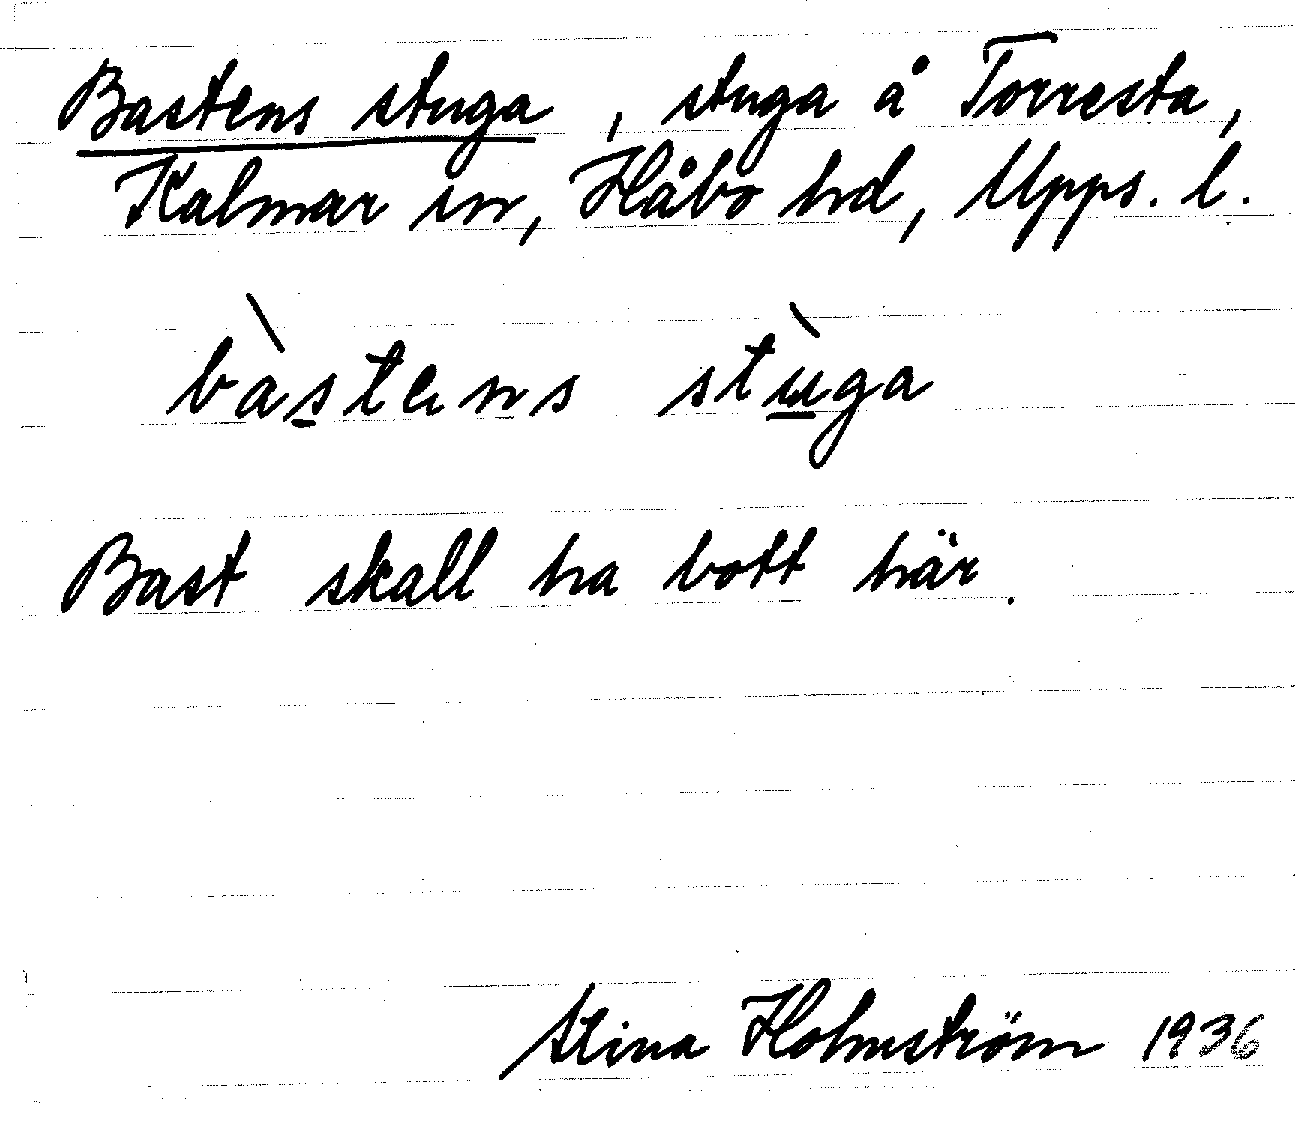 Bastens stuga, stuga å Torresta,
Kalmar sn, Håbo hd, Upps. l.
bàstens stùga
Bast skall ha bott här.
Stina Holmström 1936